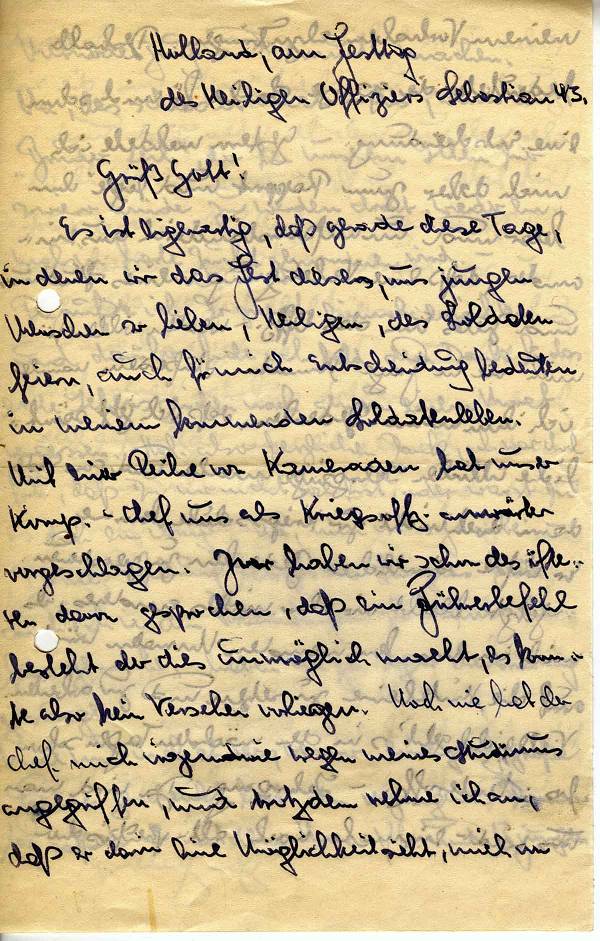 Holland, am Festtag
des Heiligen Offiziers Sebastian 43.
Grüß Gott!
Es ist eigenartig, daß gerade diese Tage,
in denen wir das Fest dieses, uns jungen
Menschen so lieben, Heiligen, des Soldaten
feiern, auch für mich Entscheidung bedeuten
in meinem kommenden Soldatenleben.
Mit einer Reihe von Kameraden hat unser
Komp.-Chef uns als Kriegsoffz. anwärter
vorgeschlagen. Zwar haben wir schon des öfte-
ren davon gesprochen, daß ein Führerbefehl
besteht der dies unmöglich macht, es konn-
te also kein Versehen vorliegen. Noch nie hat der
Chef mich irgendwie wegen meines Studiums
angegriffen, und trotzdem nehme ich an,
daß er darin eine Unmöglichkeit sieht, mich an